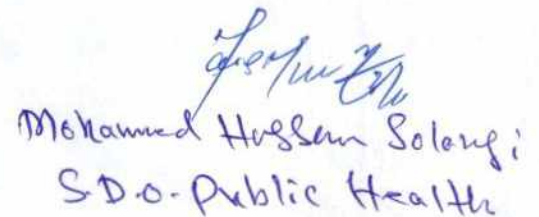 Mohammed Hussen Solangi
S.D.O. Public Health